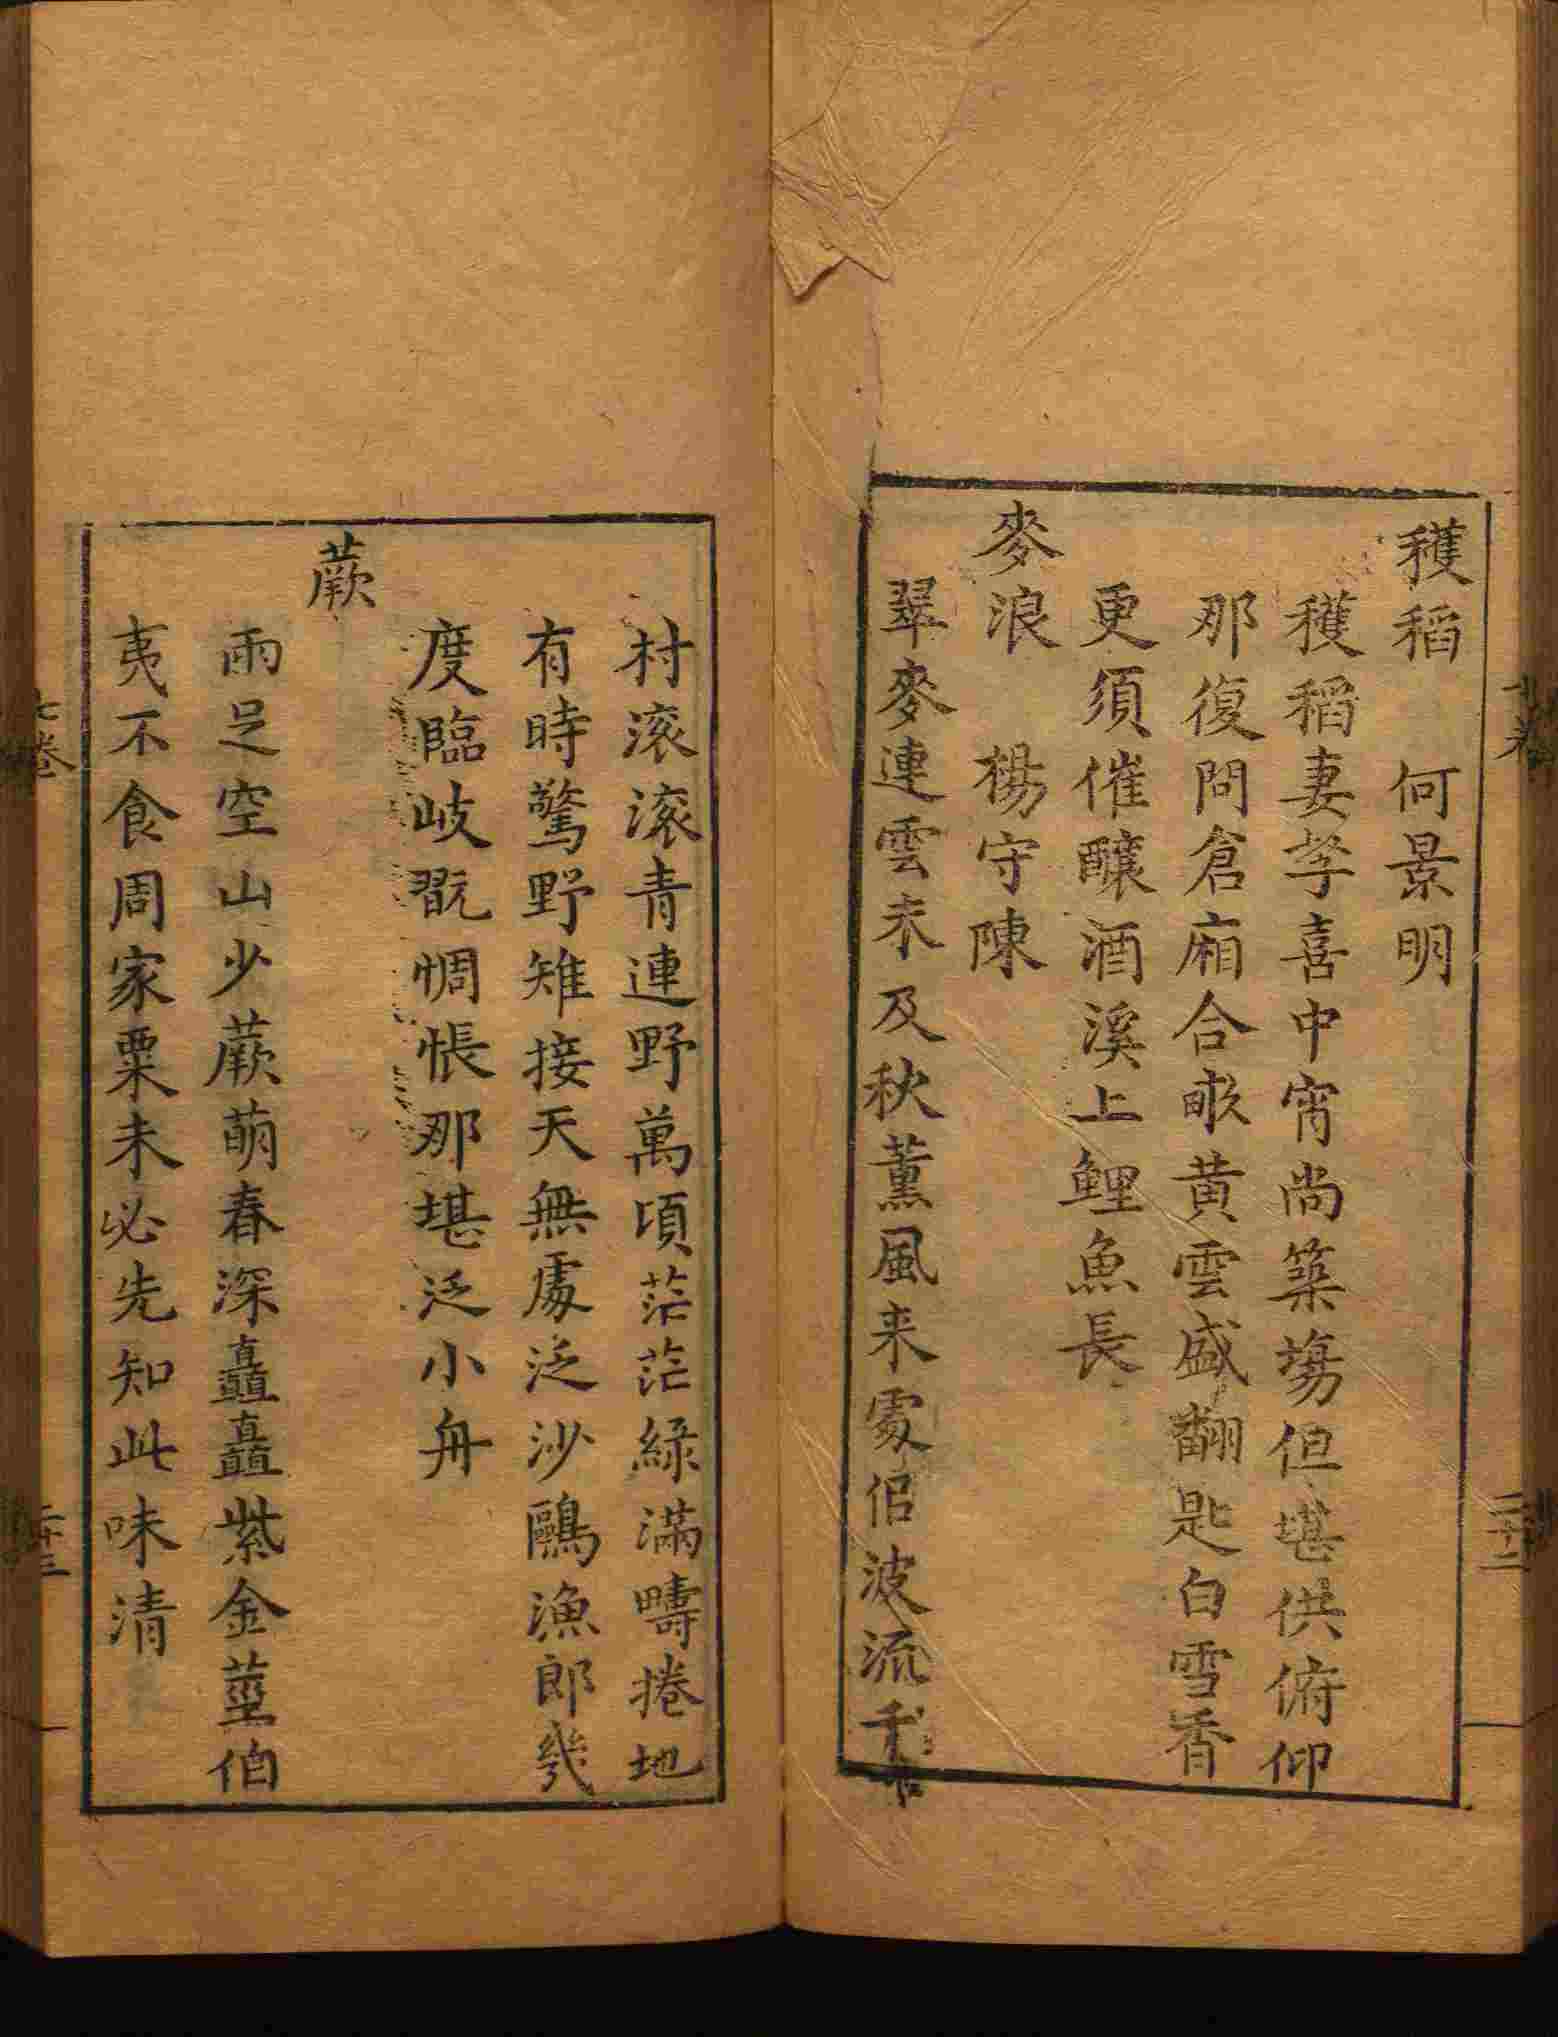 穫稻　何景明
穫稻妻孥喜中宵尚築場但堪供俯仰
那復問倉廂合畝黄雲盛翻匙白雪香
更須催釀酒溪上鯉魚長
麥浪　楊守陳
翠麥連雲未及秋薰風来處佀波流千
村滚滚青連野萬頃茫茫綠滿疇捲地
有時驚野雉接天無處泛沙鷗漁郎幾
度臨岐翫惆悵那堪泛小舟
蕨
雨足空山少蕨萌春深矗矗紫金莖伯
夷不食周家粟未必先知此味清
七卷
二十三
二十二